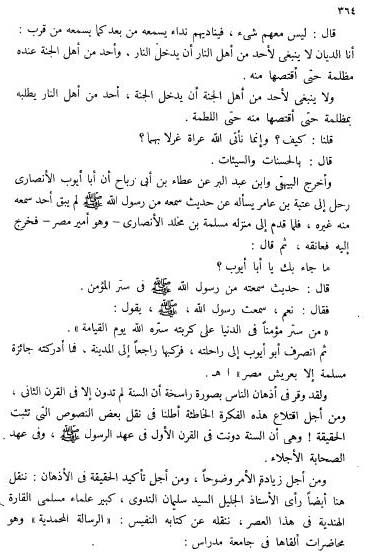 ٣٦٤
قال : ليس معهم شىء ، فيناديهم نداء يسمعه من بعد كما يسمعه من قرب :
أنا الديان لا ينبغى لأحد من أهل النار أن يدخل النار . وأحد من أهل الجنة عنده
مظلمة حتى أقتصها منه .
ولا ينبغى لأحد من أهل الجنة أن يدخل الجنة ، أحد من أهل النار يطلبه
بمظلمة حتى أقتصها منه حتى اللطمة .
قلنا : كيف ؟ وإنما نأتى الله عراة غرلا بهما ؟
قال : بالحسنات والسيئات .
وأخرج البيهقى وابن عبد البر عن عطاء بن أبى رباح أن أبا أيوب الأنصارى
رحل إلى عتبة بن عامر يسأله عن حديث سمعه من رسول الله ﷺ لم يبق أحد سمعه
منه غيره ، فلما قدم إلى منزله مسلمة بن مخلد الأنصارى – وهو أمير مصر – فخرج
إليه فعانقه ، ثم قال :
ما جاء بك يا أبا أيوب ؟
قال : حديث سمعته من رسول الله ﷺ فى ستر المؤمن .
فقال : نعم ، سمعت رسول الله ، ﷺ ، يقول :
« من ستر مؤمناً فى الدنيا على كربته ستره الله يوم القيامة » .
ثم انصرف أبو أيوب إلى راحلته ، فركبها راجعاً إلى المدينة . فما أدركته جائزة
مسلمة إلا بعريش مصر » ا هـ .
ولقد وقر فى أذهان الناس بصورة راسخة أن السنة لم تدون إلا فى القرن الثانى ،
ومن أجل اقتلاع هذه الفكرة الخاطئة أطلنا فى نقل بعض النصوص التى تثبت
الحقيقة ! وهى أن السنة دونت فى القرن الأول فى عهد الرسول ﷺ ، وفى عهد
الصحابة الأجلاء .
ومن أجل زيادة الأمر وضوحاً ، ومن أجل تأكيد الحقيقة فى الأذهان : ننقل
هنا أيضاً رأى الأستاذ الجليل السيد سليمان الندوى ، كبير علماء مسلمى القارة
الهندية فى هذا العصر ، ننقله عن كتابه النفيس : « الرسالة المحمدية » وهو
محاضرات ألقاها فى جامعة مدراس :